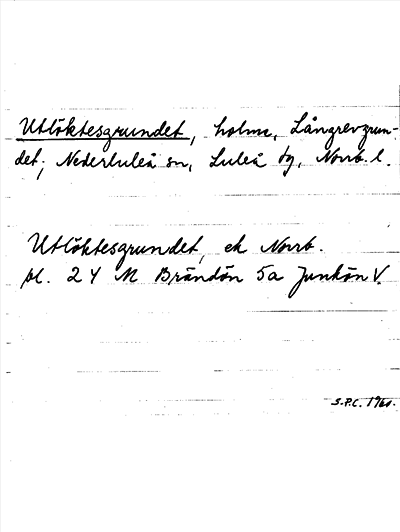 Utlöktesgrundet, holme, Långrevgrun-
det; Nederluleå sn, Luleå by, Norrb. l.
Utlöktesgrundet, ek Norrb.
bl. 24 M Brändön 5a Junkön V.
S.P.C. 1960.